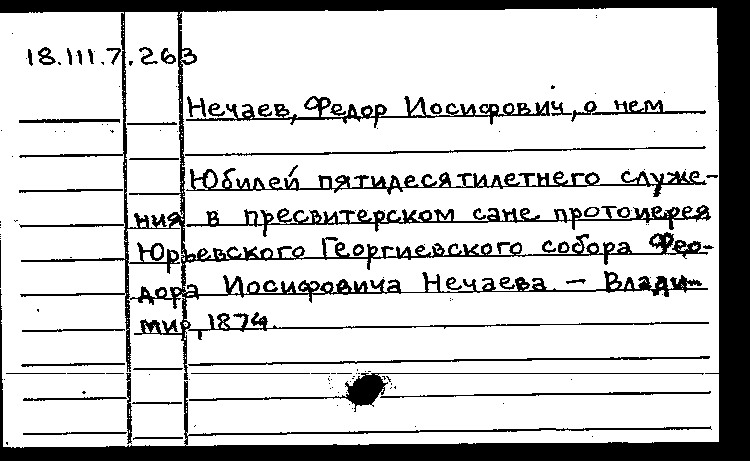 18.III.7.263
Нечаев, Федор Иосифович, о нем
Юбилей пятидесятилетнего служе-
ния в пресвитерском сане протоиерея
Юрьевского Георгиевского собора Фео-
дора Иосифовича Нечаева. - Влади-
мир, 1874.